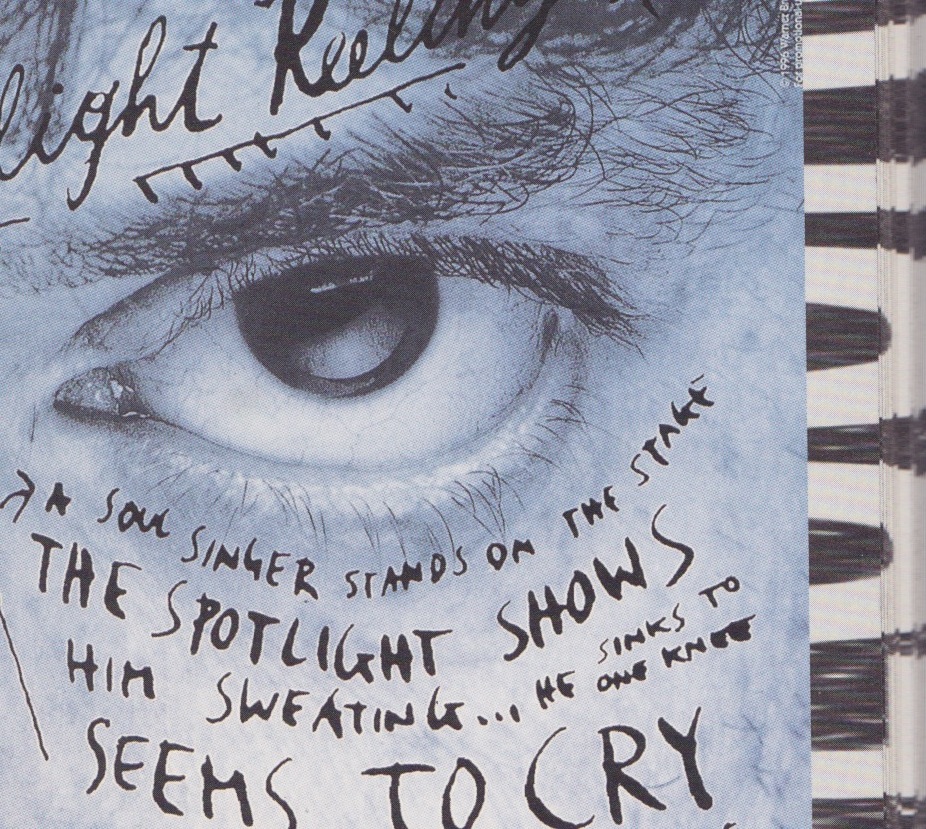 light Reeling
→ A SOUL SINGER STANDS ON THE STAGE
THE SPOTLIGHT SHOWS
HIM SWEATING... HE SINKS TO
ONE KNEE
SEEMS TO CRY